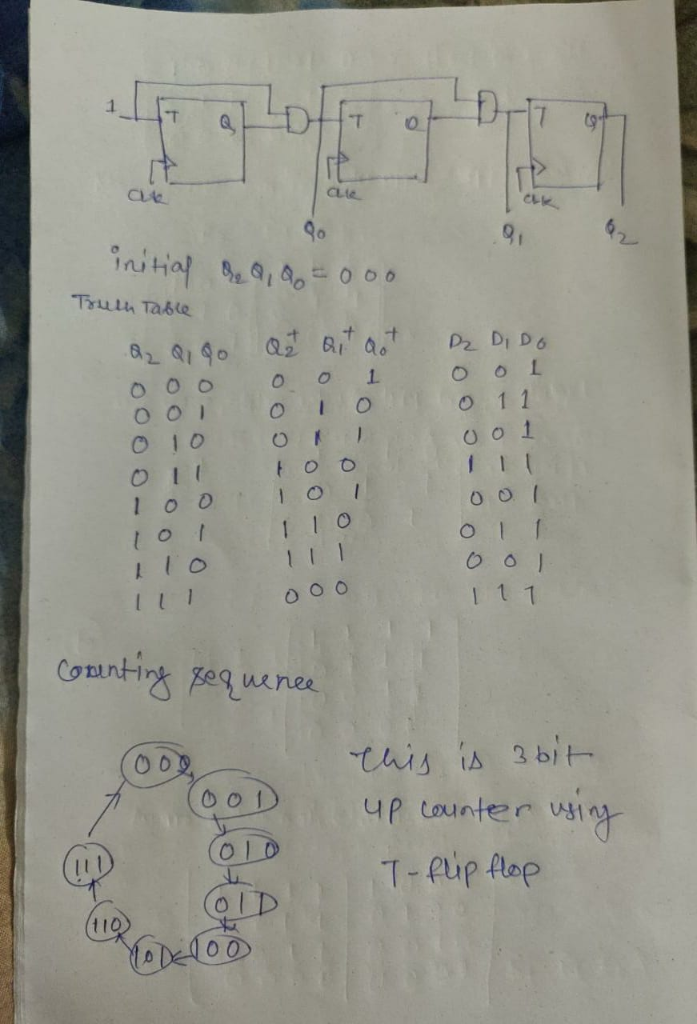 1 T Q T Q T Q
CLK CLK CLK
Q0 Q1 Q2
initial Q2 Q1 Q0 = 0 0 0
Truth Table
Q2 Q1 Q0 Q2+ Q1+ Q0+ D2 D1 D0
0 0 0 0 0 1 0 0 1
0 0 1 0 1 0 0 1 1
0 1 0 0 1 1 0 0 1
0 1 1 1 0 0 1 1 1
1 0 0 1 0 1 0 0 1
1 0 1 1 1 0 0 1 1
1 1 0 1 1 1 0 0 1
1 1 1 0 0 0 1 1 1
Counting sequence
000
001
010
011
100
101
110
111
This is 3 bit
up counter using
T-flip flop